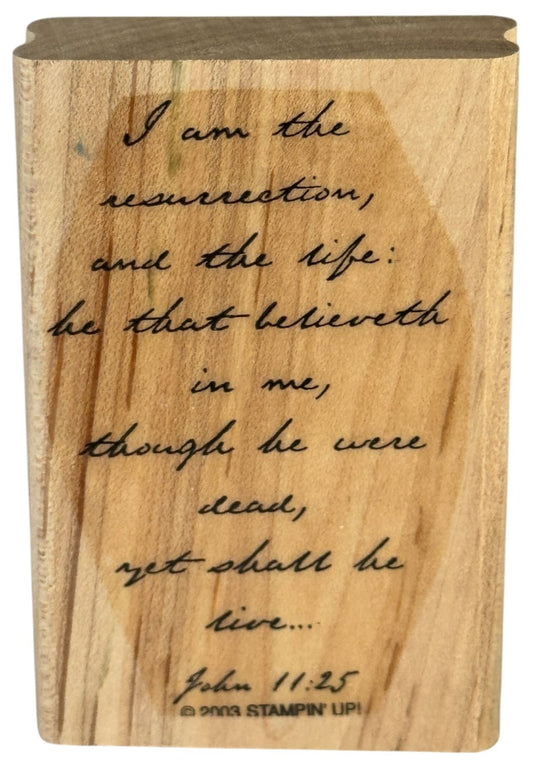 I am the
resurrection,
and the life:
he that believeth
in me,
though he were
dead,
yet shall he
live...
John 11:25
© 2003 STAMPIN' UP!